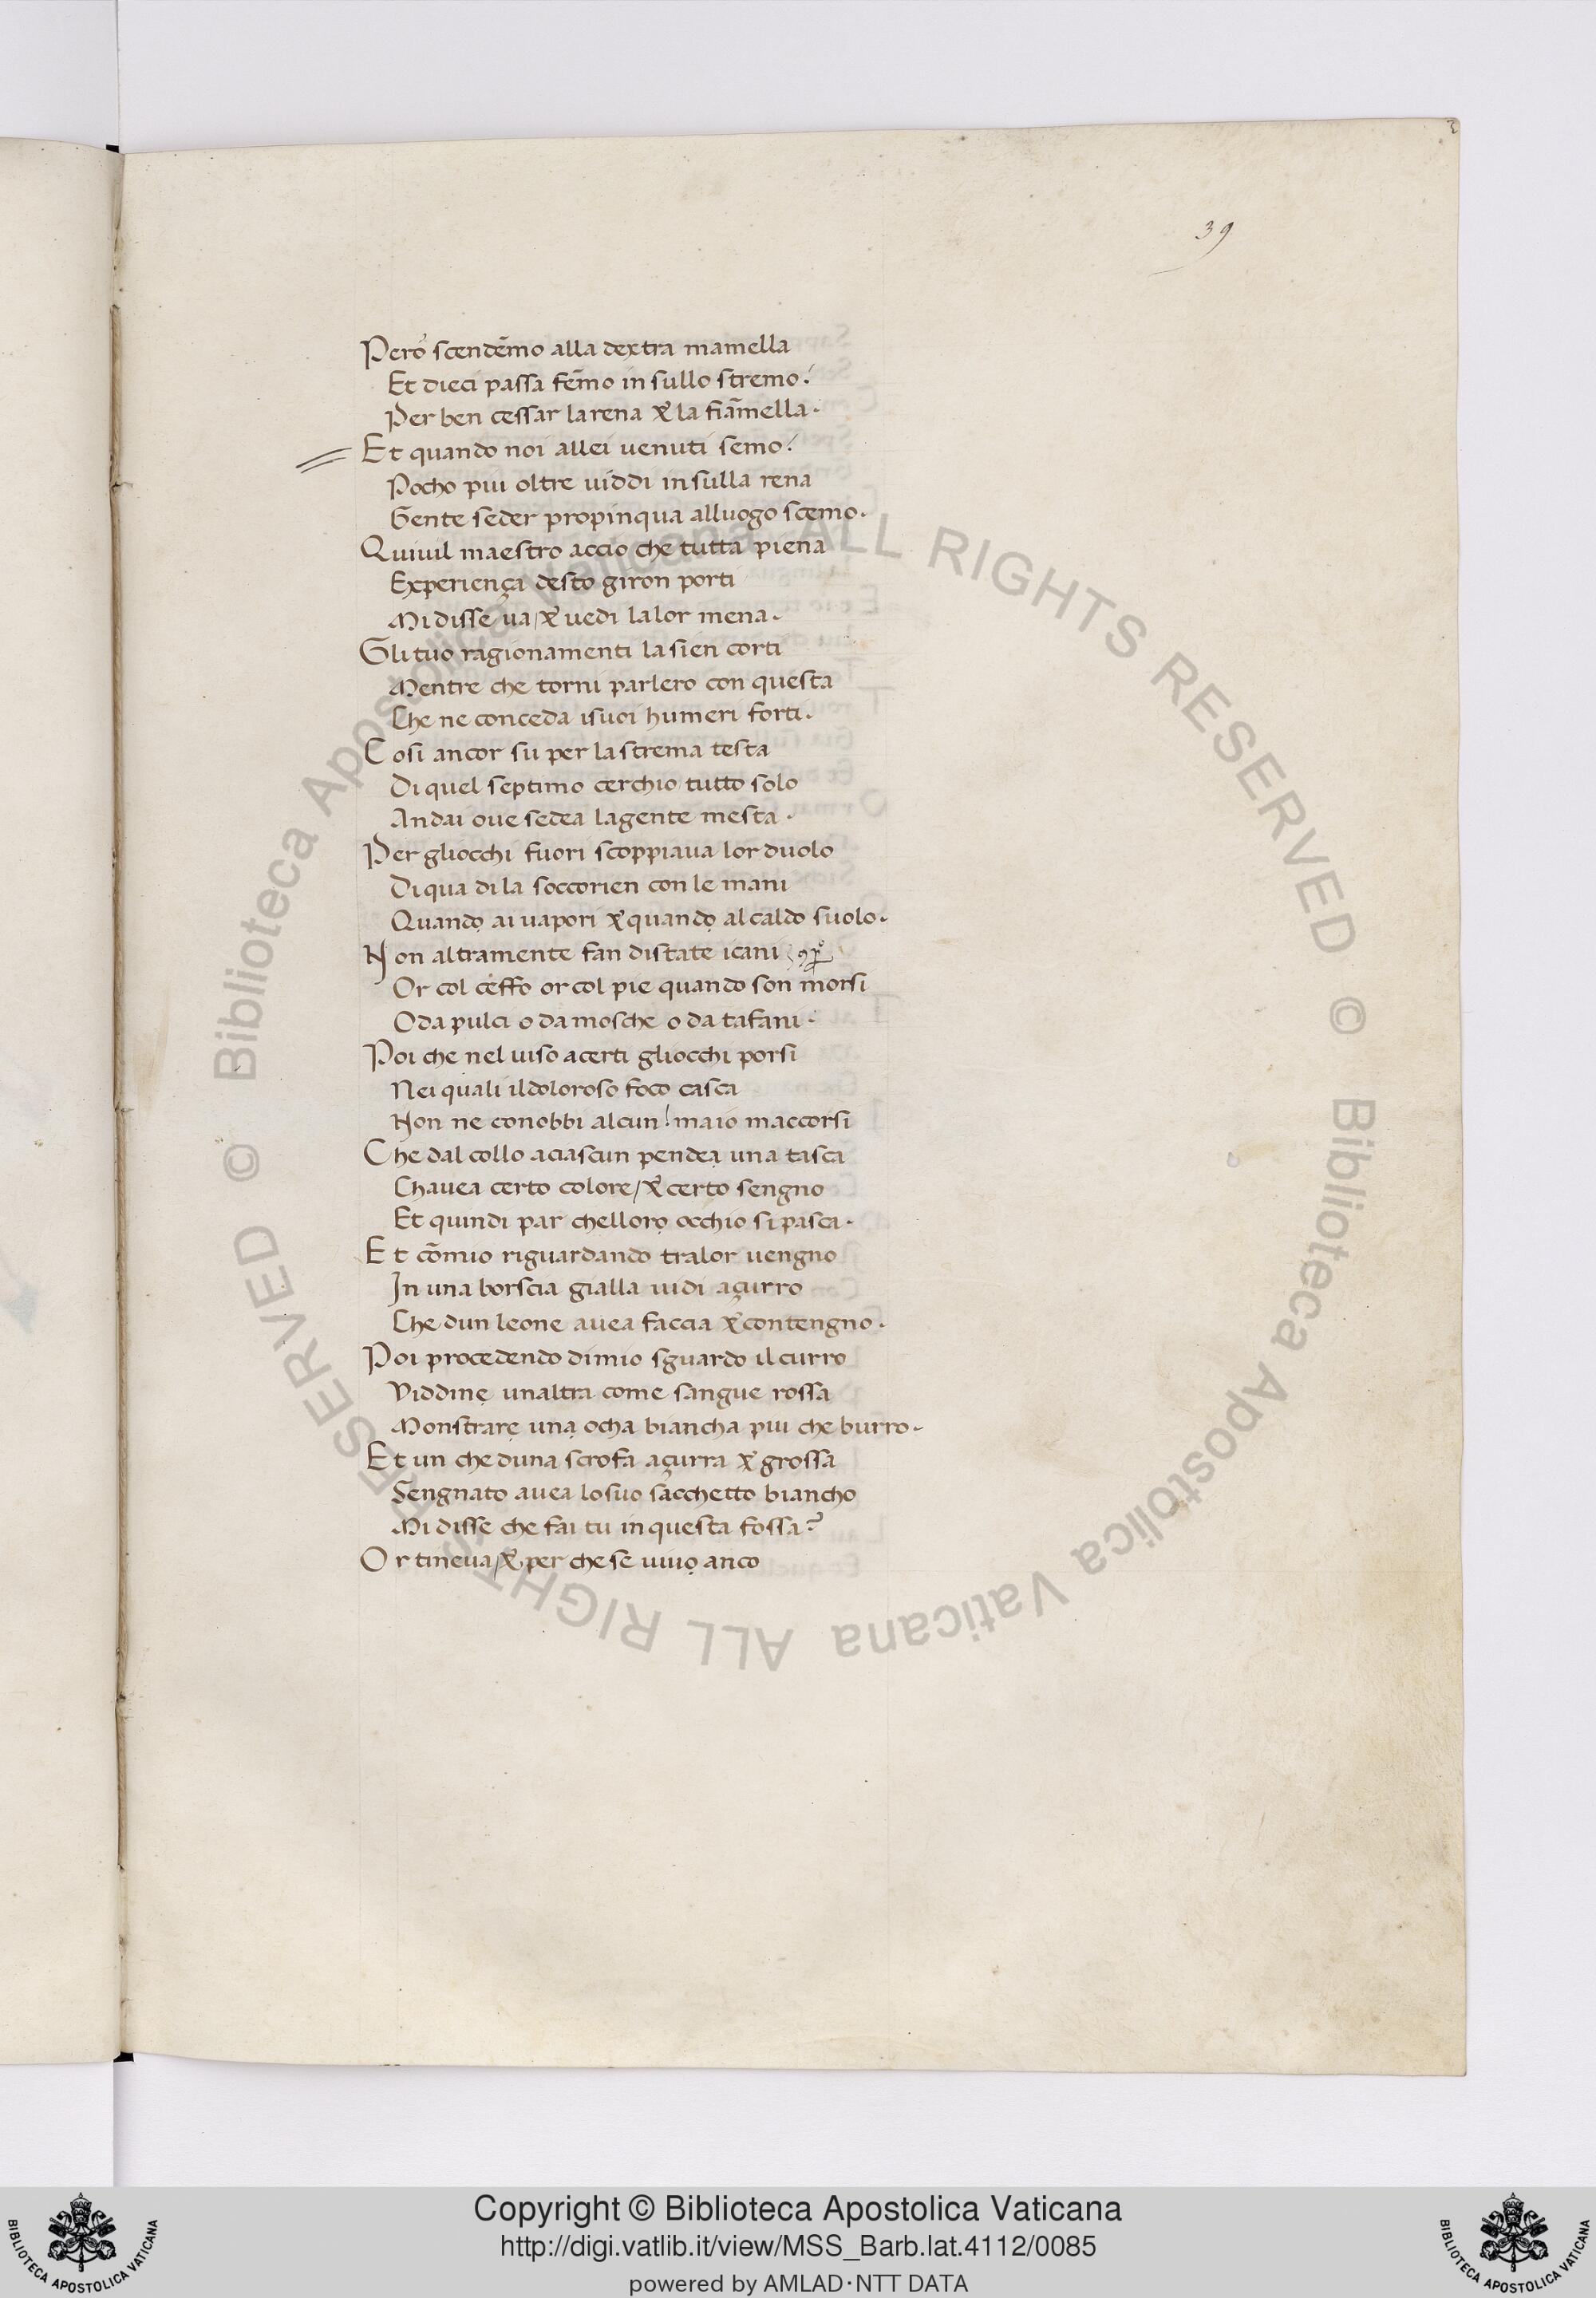 3
39
Pero scendẽmo alla dextra mamella
Et dieci passa fẽmo in sullo stremo:
Per ben cessar larena & la fiãmella.
Et quando noi allei uenuti semo:
Pocho piu oltre uiddi insulla rena
Gente seder propinqua alluogo scemo.
Quiuil maestro accio che tutta piena
Experiença desto giron porti
Mi disse ua/& uedi lalor mena.
Gli tuo ragionamenti la sien corti
Mentre che torni parlero con questa
Che ne conceda isuoi humeri forti.
Cosi ancor su per la strema testa
Di quel septimo cerchio tutto solo
Andai oue sedea lagente mesta.
Per gliocchi fuori scoppiaua lor duolo
Di qua di la soccorien con le mani
Quandọ ai uapori & quandọ al caldo suolo.
Non altramente fan distate icani
Or col ceffo or col pie quando son morsi
O da pulci o da mosche o da tafani.
Poi che nel uiso acerti gliocchi porsi
Nei quali ildoloroso foco casca
Non ne conobbi alcun! maio maccorsi
Che dal collo aciascun pendeạ una tasca
Chauea certo colore/& certo sengno
Et quindi par chellorọ occhio si pasca.
Et cõmio riguardando tralor uengno
In una borscia gialla uidi açurro
Che dun leone auea faccia & contengno.
Poi procedendo dimio sguardo il curro
Viddinẹ unaltra come sangue rossa
Monstrarẹ unạ ocha biancha piu che burro.
Et un che dunạ scrofa açurra & grossa
Sengnato auea losuo sacchetto biancho
Mi disse che fai tu in questa fossa?
Or tineua/& per che se uiuọ anco
Copyright © Biblioteca Apostolica Vaticana
http://digi.vatlib.it/view/MSS_Barb.lat.4112/0085
powered by AMLAD·NTT DATA
BIBLIOTECA APOSTOLICA VATICANA
BIBLIOTECA APOSTOLICA VATICANA
© Biblioteca Apostolica Vaticana ALL RIGHTS RESERVED
© Biblioteca Apostolica Vaticana ALL RIGHTS RESERVED